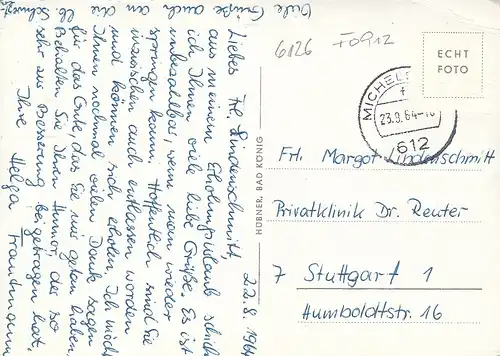 Viele Grüße auch an die lb. Schwester
22.8.1964
Liebes Frl. Lindenschmitt
aus meinem Erholungsurlaub schicke
ich Ihnen viele liebe Grüße. Es ist
unbezahlbar, wenn man wieder
springen kann. Hoffentlich sind Sie
inzwischen auch entlassen worden
und können sich erholen. Ich möchte
Ihnen nochmal vielen Dank sagen
für das Gute, das Sie mir getan haben.
Behalten Sie Ihren Humor, der so
sehr zur Besserung beigetragen hat.
Ihre Helga
6126 F0912
ECHT
FOTO
23.9.64
612
HÜBNER, BAD KÖNIG
Frl. Margot Lindenschmitt
Privatklinik Dr. Reuter
7 Stuttgart 1
Humboldtstr. 16